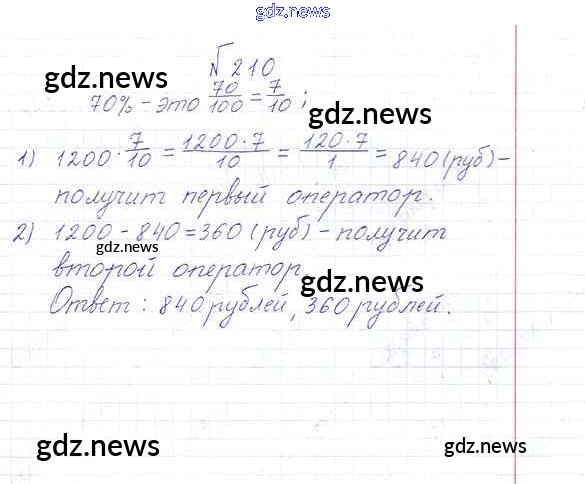 gdz.news
№210
gdz.news
70% - это 70/100 = 7/10;
gdz.news
1) 1200 · 7/10 = 1200 · 7/10 = 120 · 7/1 = 840 (руб) -
получит первый оператор.
2) 1200 - 840 = 360 (руб) - получит
gdz.news
второй оператор.
gdz.news
Ответ: 840 рублей, 360 рублей.
gdz.news
gdz.news